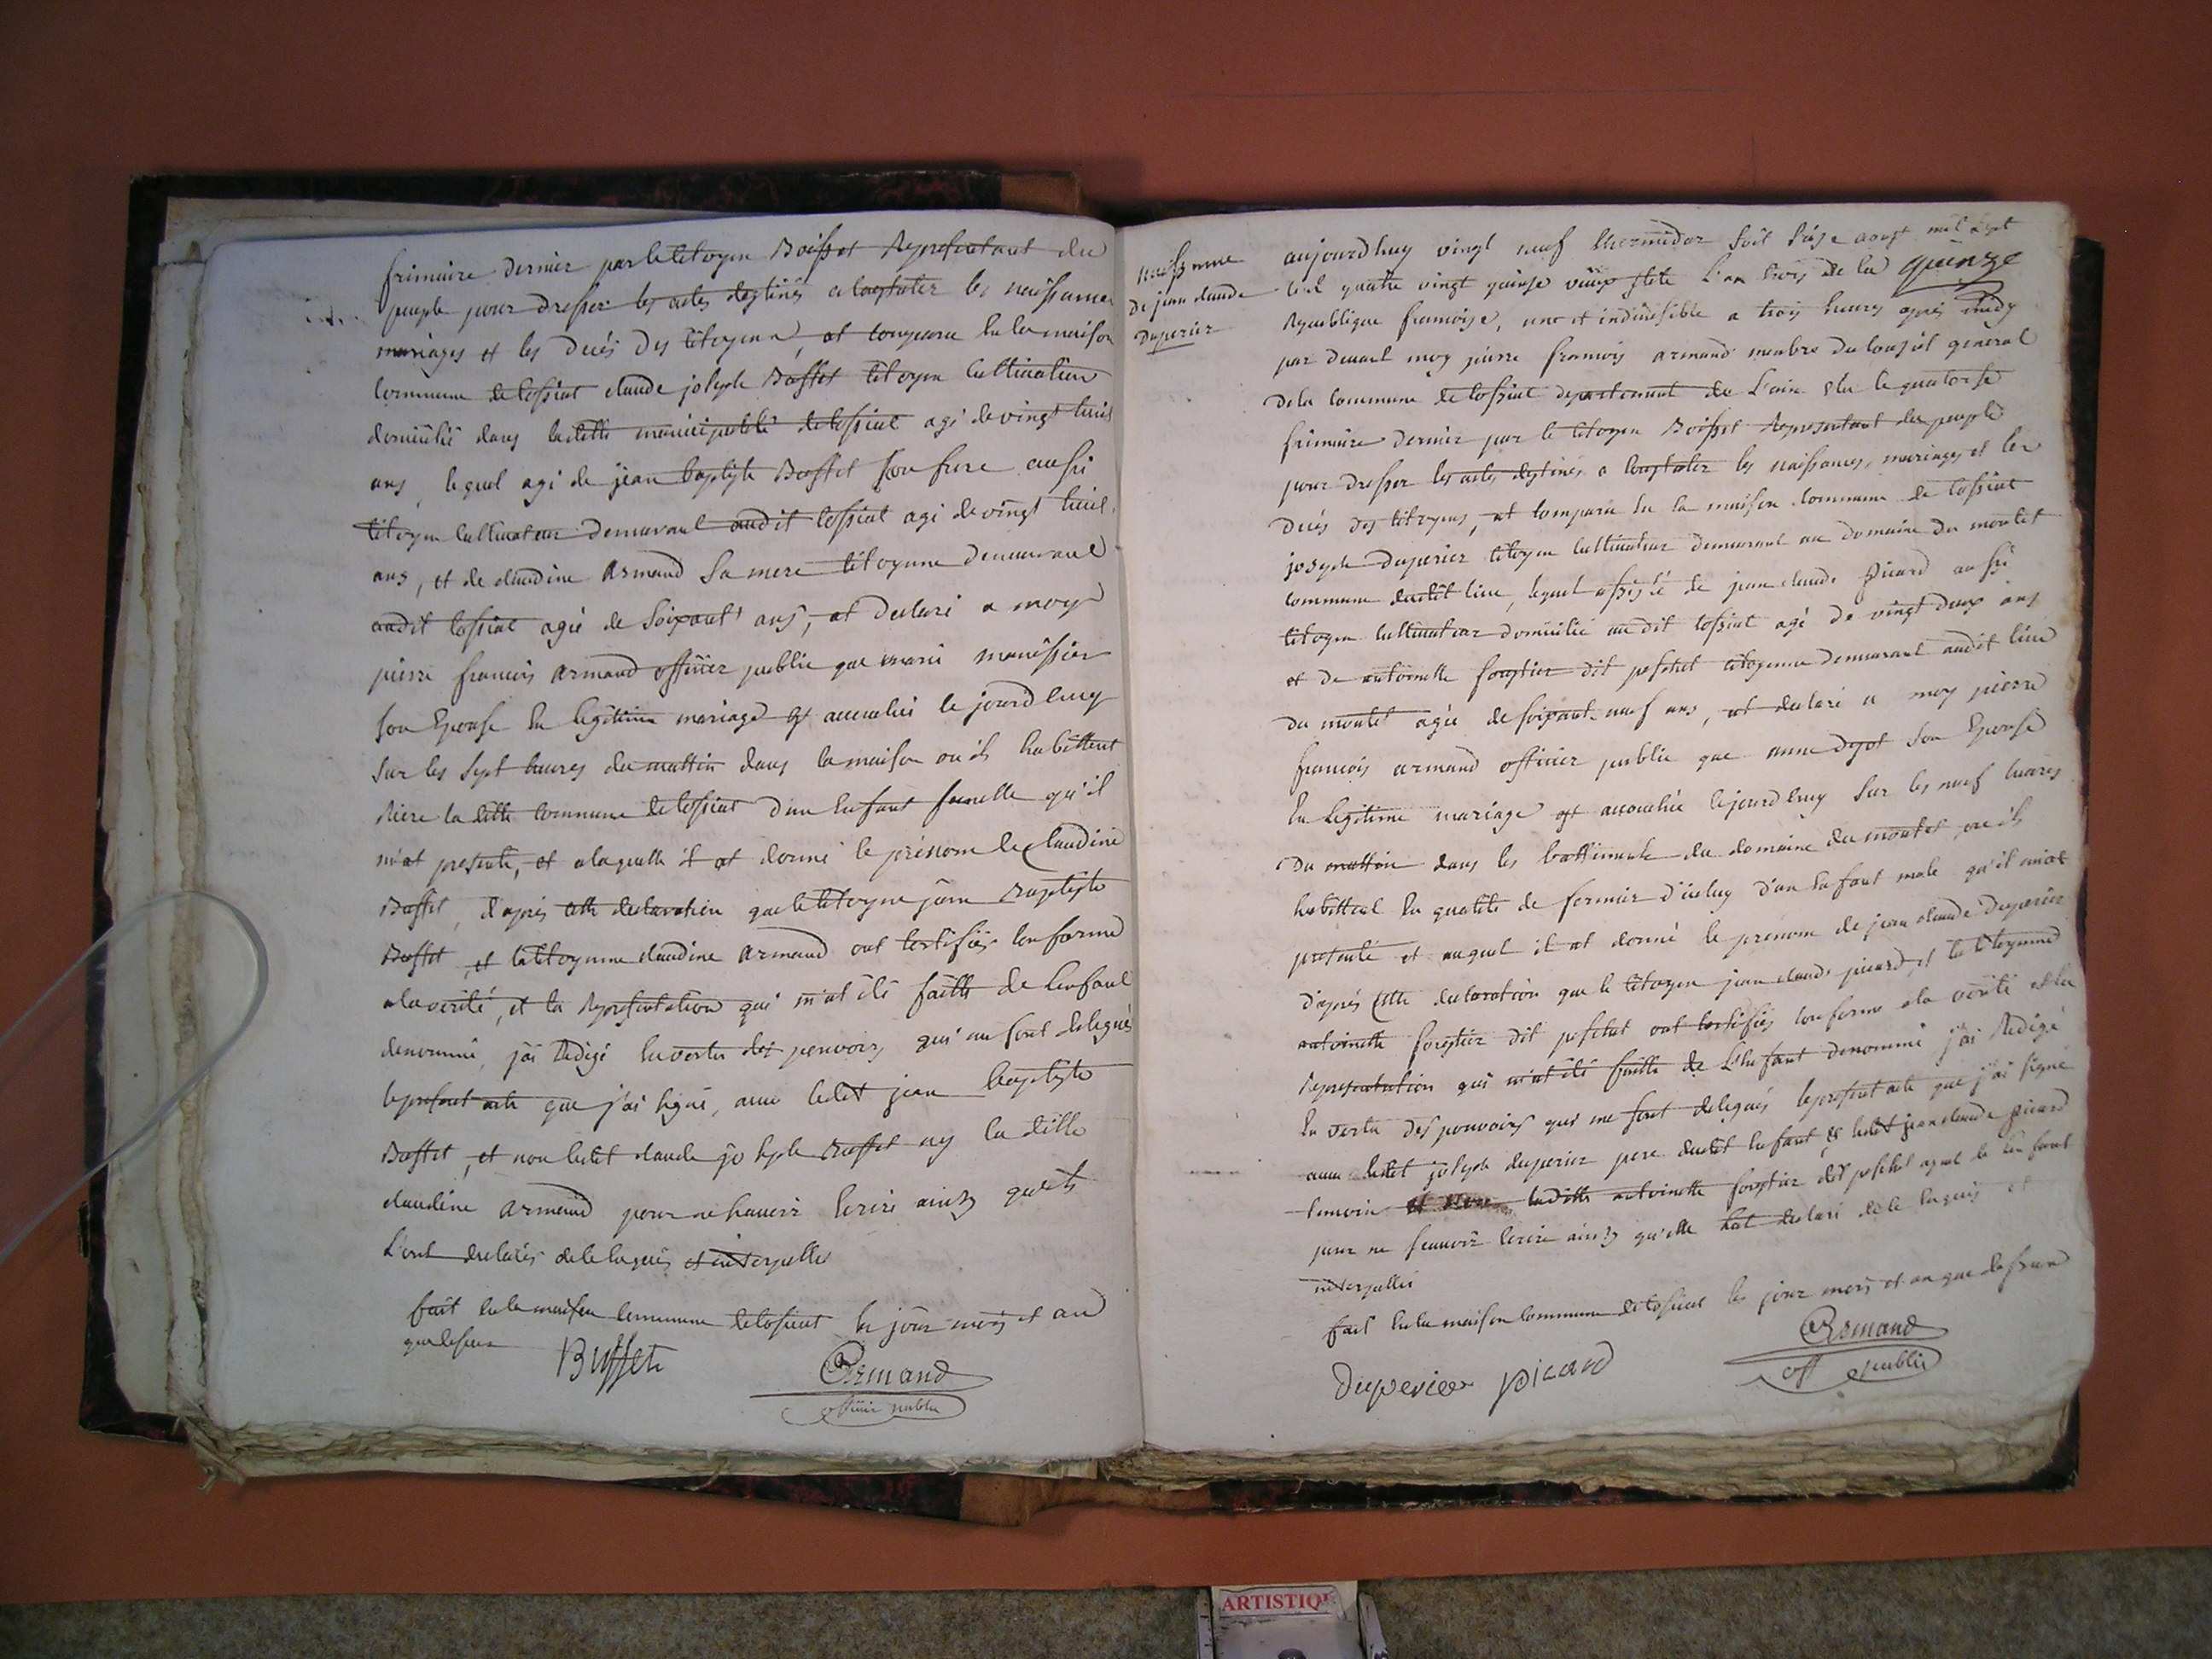 frimaire dernier par le citoyen Boisset Representant du
peuple pour dresser les actes destinés a constater les naissances
mariages et les decés des citoyens, at comparu en la maison
commune de cossiat claude joseph Buffet citoyen cultivateur
domicilié dans laditte municipalité de cossiat agé de vingt huit
ans, lequel agi de jean baptiste Buffet son frere aussi
citoyen cultivateur demeurant audit cossiat agé de vingt huit
ans, et de claudine armand sa mere citoyenne demeurant
audit cossiat agée de soixant ans, at declaré a moy
pierre francois armand officier public que marie manissier
son Epouse en legitime mariage est accouchée le jourd'huy
sur les sept heures du mattin dans la maison où ils habittent
riere la ditte commune de cossiat d'un enfant femelle qu'il
m'at presenté, et alaquelle il at donné le prénom de claudine
Buffet, d'après cette declaration que le citoyen jean Baptiste
Buffet, et la citoyenne claudine armand ont certifiée conforme
ala verité, et la representation qui m'at été faitte de l'enfant
denommé, j'ai redigé en vertu des pouvoirs qui me sont delegués
le present acte que j'ai signé, avec ledit jean baptiste
Buffet, et non ledit claude joseph Buffet ny la ditte
claudine armand pour ne scavoir ecrire ainsy qu'ils
l'ont declarés de ce enquis et interpellés
fait en la maison commune de cossiat les jour mois et an
que dessus
Buffet
Armand
officier public
naissance
de jean claude
Duperier
aujourd'huy vingt neuf thermidor soit séize aoust mil sept
cent quatre vingt quinse vieux stile l'an trois de la quinze
republique francoise, une et indivisible a trois heures après midy
par devant moy pierre francois armand membre du conseil general
de la commune de cossiat departement de l'ain elu le quatorse
frimaire dernier par le citoyen Boisset Representant du peuple
pour dresser les actes destinés a constater les naissances, mariages et les
decés des citoyens, at comparu en la maison commune de cossiat
joseph Duperier citoyen cultivateur demeurant au domaine du montet
commune dudit lieu, lequel assisté de jean claude Picard aussi
citoyen cultivateur domicilié audit cossiat agé de vingt deux ans
et de antoinette forestier dit peschet citoyenne demeurant audit lieu
du montet agée de soixant neuf ans, at declaré a moy pierre
francois armand officier public que anne depot son Epouse
en legitime mariage est accouchée le jourd'huy sur les neuf heures
du mattin dans les battiments du domaine du montet où ils
habittent en qualité de fermier d'iceluy d'un enfant male qu'il m'at
presenté et auquel il at donné le prenom de jean claude Duperier
d'après cette declaration que le citoyen jean claude picard, et la citoyenne
antoinette forestier dit peschet ont certifiées conforme à la verité et la
representation qui m'at été faitte de l'enfant denommé j'ai redigé
en vertu des pouvoirs qui me sont delegués le present acte que j'ai signé
avec ledit joseph duperier pere dudit enfant, et ledit jean claude picard
temoin et non laditte antoinette forestier dit peschet
pour ne scavoir ecrire ainsy qu'elle l'at declaré de ce enquis et
interpellée
fait en la maison commune de cossiat les jour mois et an que dessus
Duperier picard
Armand
off public
ARTISTIQUE